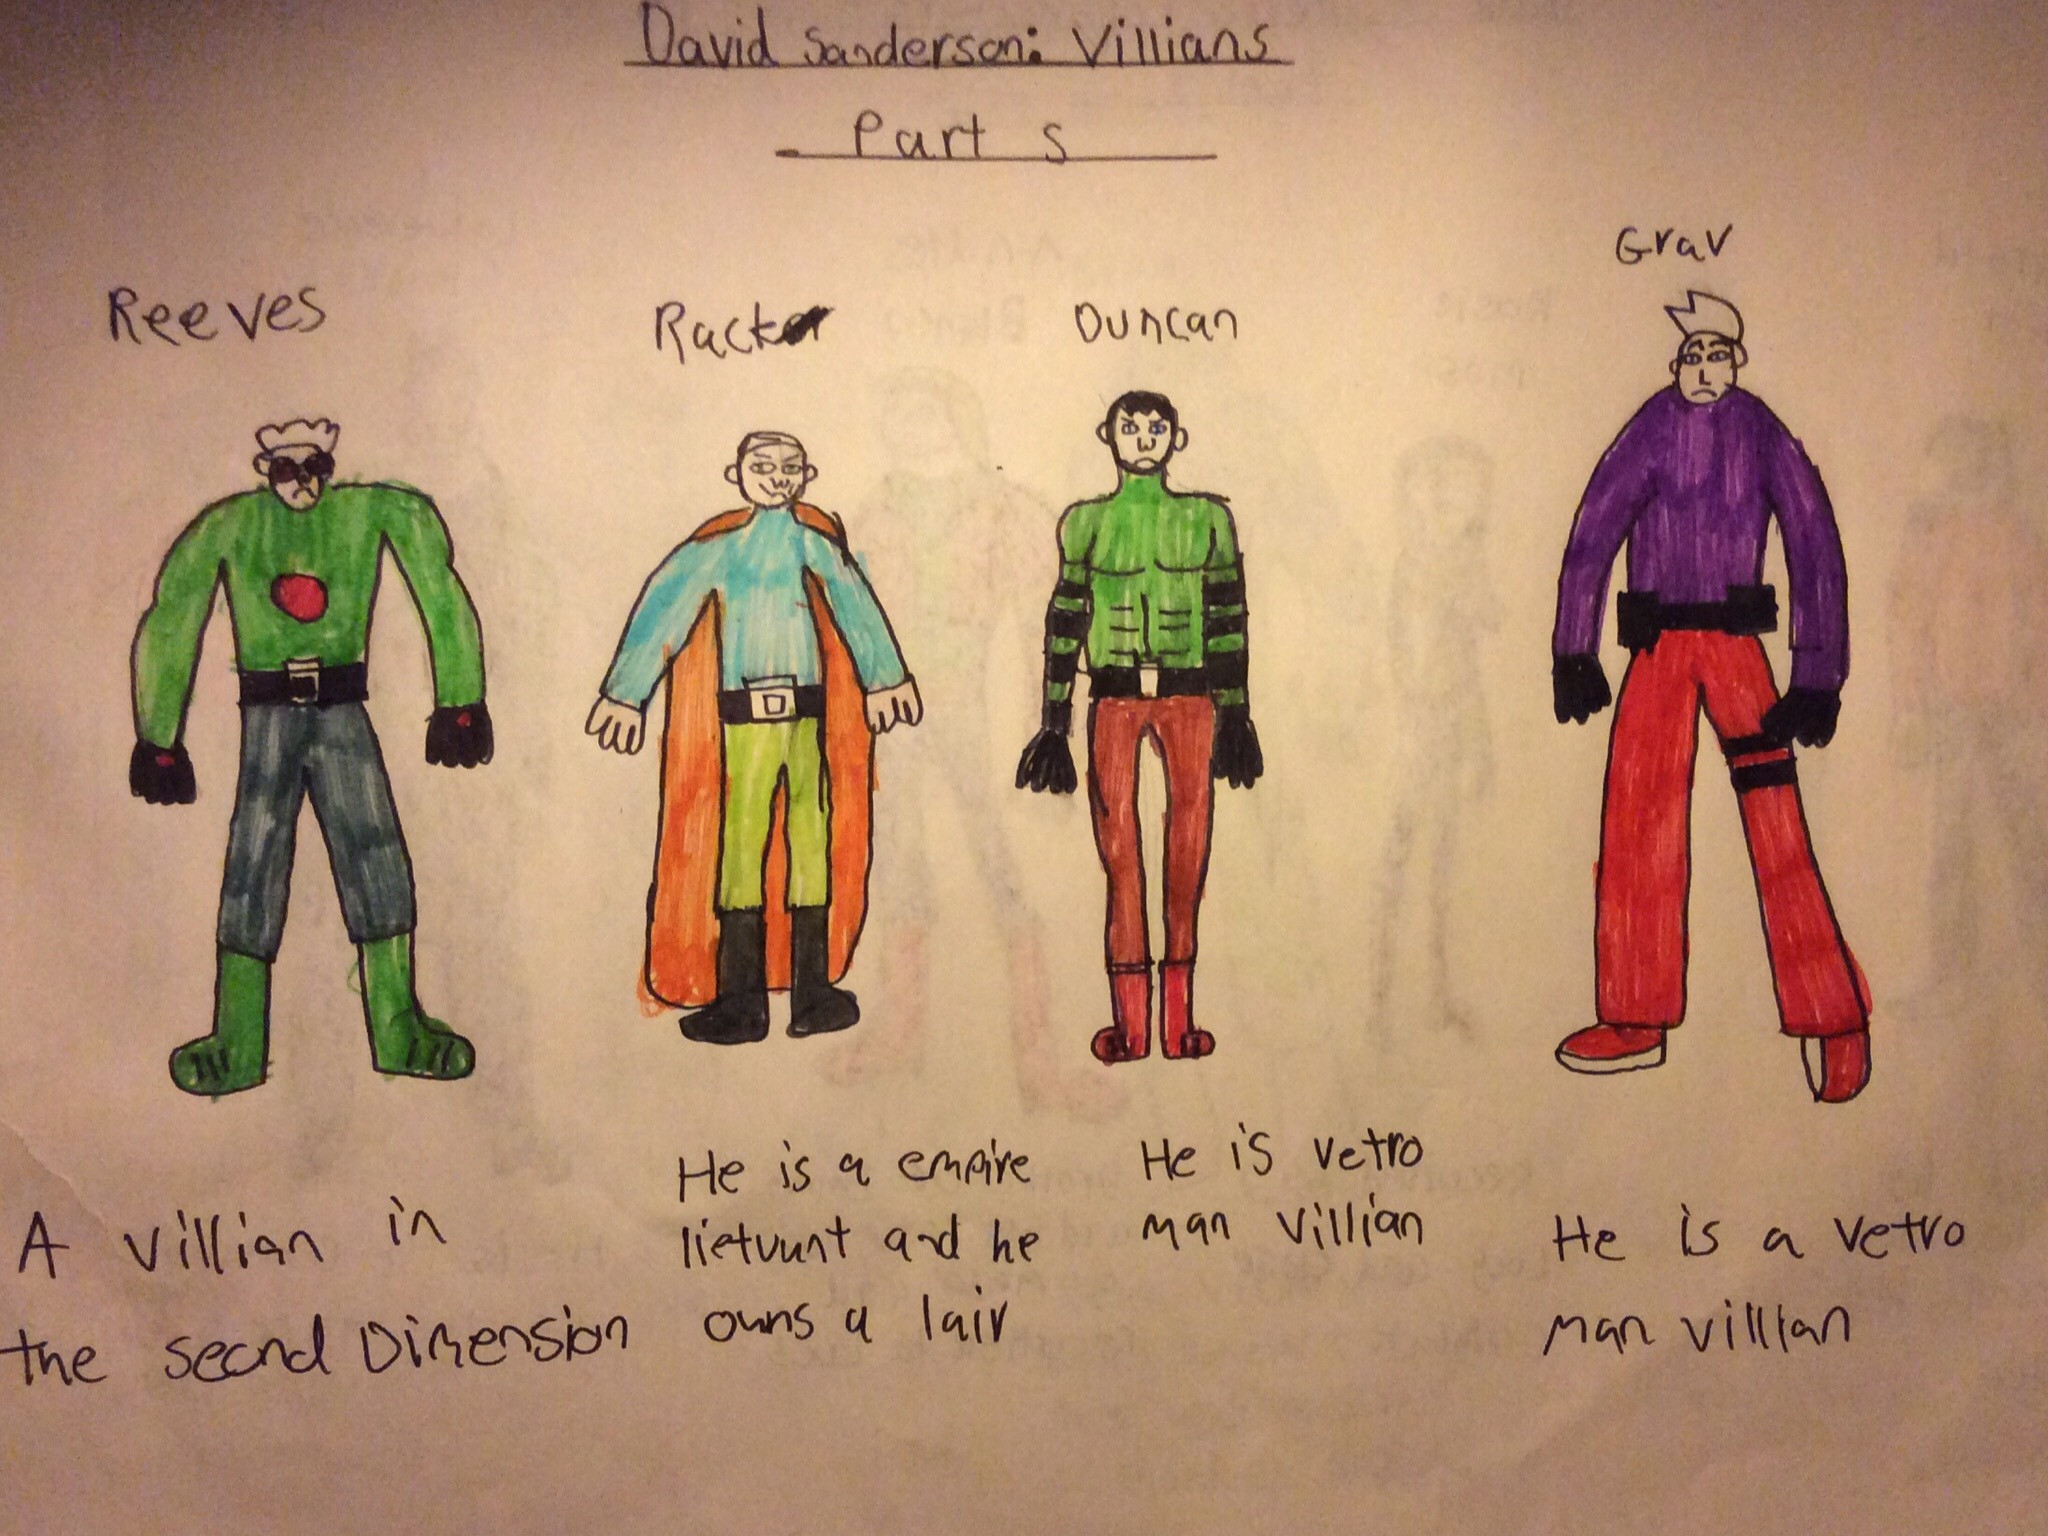 David Sanderson: Villians
Part 5
Reeves
Racker
Duncan
Grav
A villian in
the secnd Dimension
He is a empire
lietvunt and he
owns a lair
He is vetro
man villian
He is a vetro
man villian